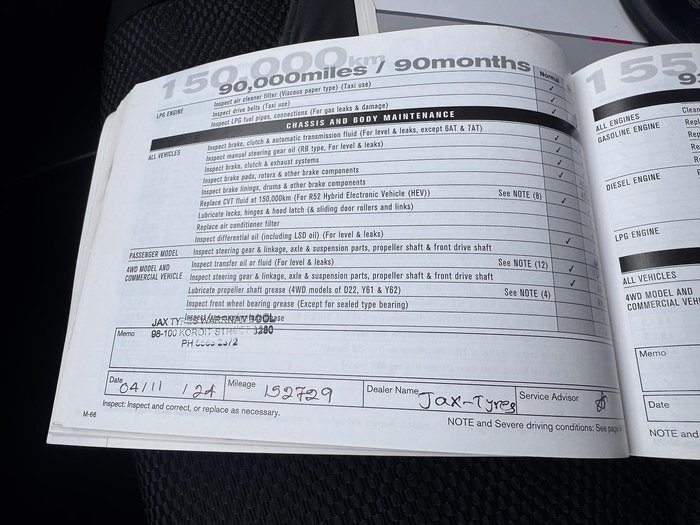 150,000km
90,000miles / 90months
Normal
Inspect air cleaner filter (Viscous paper type) (Taxi use)
LPG ENGINE Inspect drive belts (Taxi use)
Inspect LPG fuel pipes, connections (For gas leaks & damage)
CHASSIS AND BODY MAINTENANCE
ALL VEHICLES Inspect brake, clutch & automatic transmission fluid (For level & leaks, except 8AT & 7AT)
Inspect manual steering gear oil (RB type, For level & leaks)
Inspect brake, clutch & exhaust systems
Inspect brake pads, rotors & other brake components
Inspect brake linings, drums & other brake components
Replace CVT fluid at 150,000km (For R52 Hybrid Electronic Vehicle (HEV)) See NOTE (8)
Lubricate locks, hinges & hood latch (& sliding door rollers and links)
Replace air conditioner filter
Inspect differential oil (including LSD oil) (For level & leaks)
PASSENGER MODEL Inspect steering gear & linkage, axle & suspension parts, propeller shaft & front drive shaft
4WD MODEL AND COMMERCIAL VEHICLE Inspect transfer oil or fluid (For level & leaks) See NOTE (12)
Inspect steering gear & linkage, axle & suspension parts, propeller shaft & front drive shaft
Lubricate propeller shaft grease (4WD models of D22, Y61 & Y62) See NOTE (4)
Inspect front wheel bearing grease (Except for sealed type bearing)
JAX TYRES WARRNAMBOOL
Memo 98-100 KOROIT STREET 3280
PH
Date 04/11/24 Mileage 152729 Dealer Name Jax-Tyres Service Advisor
Inspect: Inspect and correct, or replace as necessary.
M-66 NOTE and Severe driving conditions: See page
155,
ALL ENGINES
GASOLINE ENGINE
DIESEL ENGINE
LPG ENGINE
ALL VEHICLES
4WD MODEL AND
COMMERCIAL VEH
Memo
Date
NOTE and